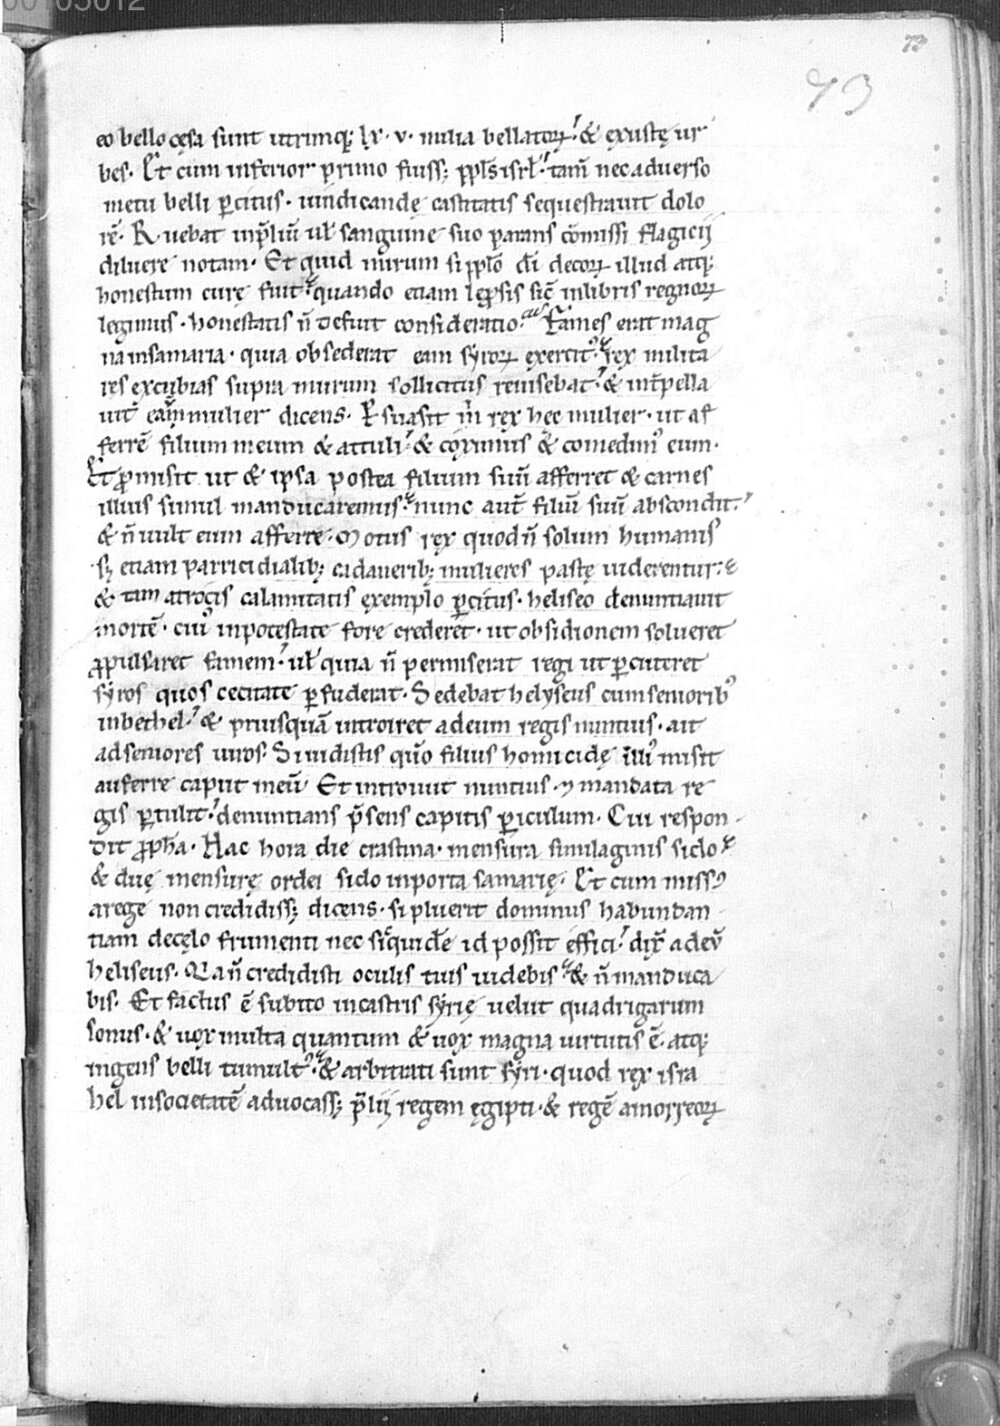 00105012
73
73
eo bello cęsa sunt utrimq; lx·v· milia bellatorꝝ· & exustę ur
bes. Et cum inferior primo fuiss; ppl̄s isrl̄· tam̄ nec aduerso
metu belli ꝑcitus· uindicandę castitatis sequestrauit dolo
rē. Ruebat inp̄liū ul̄ sanguine suo parans cōmissi flagicii
diluere notam. Et quid mirum si pplo di decorꝝ illud atq;
honestum curę fuit· quando etiam leprosis sic̄ inlibris regnorꝝ
legimus· honestatis n̄ defuit consideratio. Fames erat mag
na insamaria· quia obsederat eam syrorꝝ exercit᾽· rex milita
res excubias supra murum sollicitus reuisebat· & int̄pella
uit eam mulier dicens. Ꝑsuasit m̄ rex hec mulier· ut af
ferrē filium meum & attuli· & coximus & comedim᾽ eum·
Et ꝓmisit ut & ipsa postea filium suū afferret & carnes
illius simul manducaremus· nunc aut̄ filiū suū abscondit·
& n̄ uult eum afferre· Motus rex quod n̄ solum humanis
s; etiam parricidialib; cadauerib; mulieres pastę uiderentur·
& tam atrocis calamitatis exemplo ꝑcitus· heliseo denuntiauit
mortē· cui᾽ inpotestate fore crederet· ut obsidionem solueret
ꝓpulsaret famem· ul̄ quia n̄ permiserat regi ut ꝑcuteret
syros quos cecitate ꝑfuderat. Sedebat helyseus cum seniorib᾽
inbethel· & priusquā introiret adeum regis nuntius· ait
adseniores uiros. Si uidistis quo filius homicidę illi᾽ misit
auferre caput meū Et introiuit nuntius· & mandata re
gis ꝑtulit· denuntians p̄sens capitis ꝑiculum. Cui respon
dit ꝓph̄a. Hac hora die crastina· mensura similaginis siclo
& duę mensurę ordei siclo inporta samarię. Et cum missus
arege non credidiss; dicens· si pluerit dominus habundan
tiam decęlo frumenti nec sic quidē id possit effici· dix̄ adeū
heliseus. Quia n̄ credidisti oculis tuis uidebis· & n̄ manduca
bis. Et factus ē subito incastris syrię uelut quadrigarum
sonus· & uox multa quantum & uox magna uirtutis ē· atq;
ingens belli tumult᾽· & arbitrati sunt syri· quod rex isra
hel insocietatē aduocass; p̄lii regem ęgipti· & regē amorreorꝝ